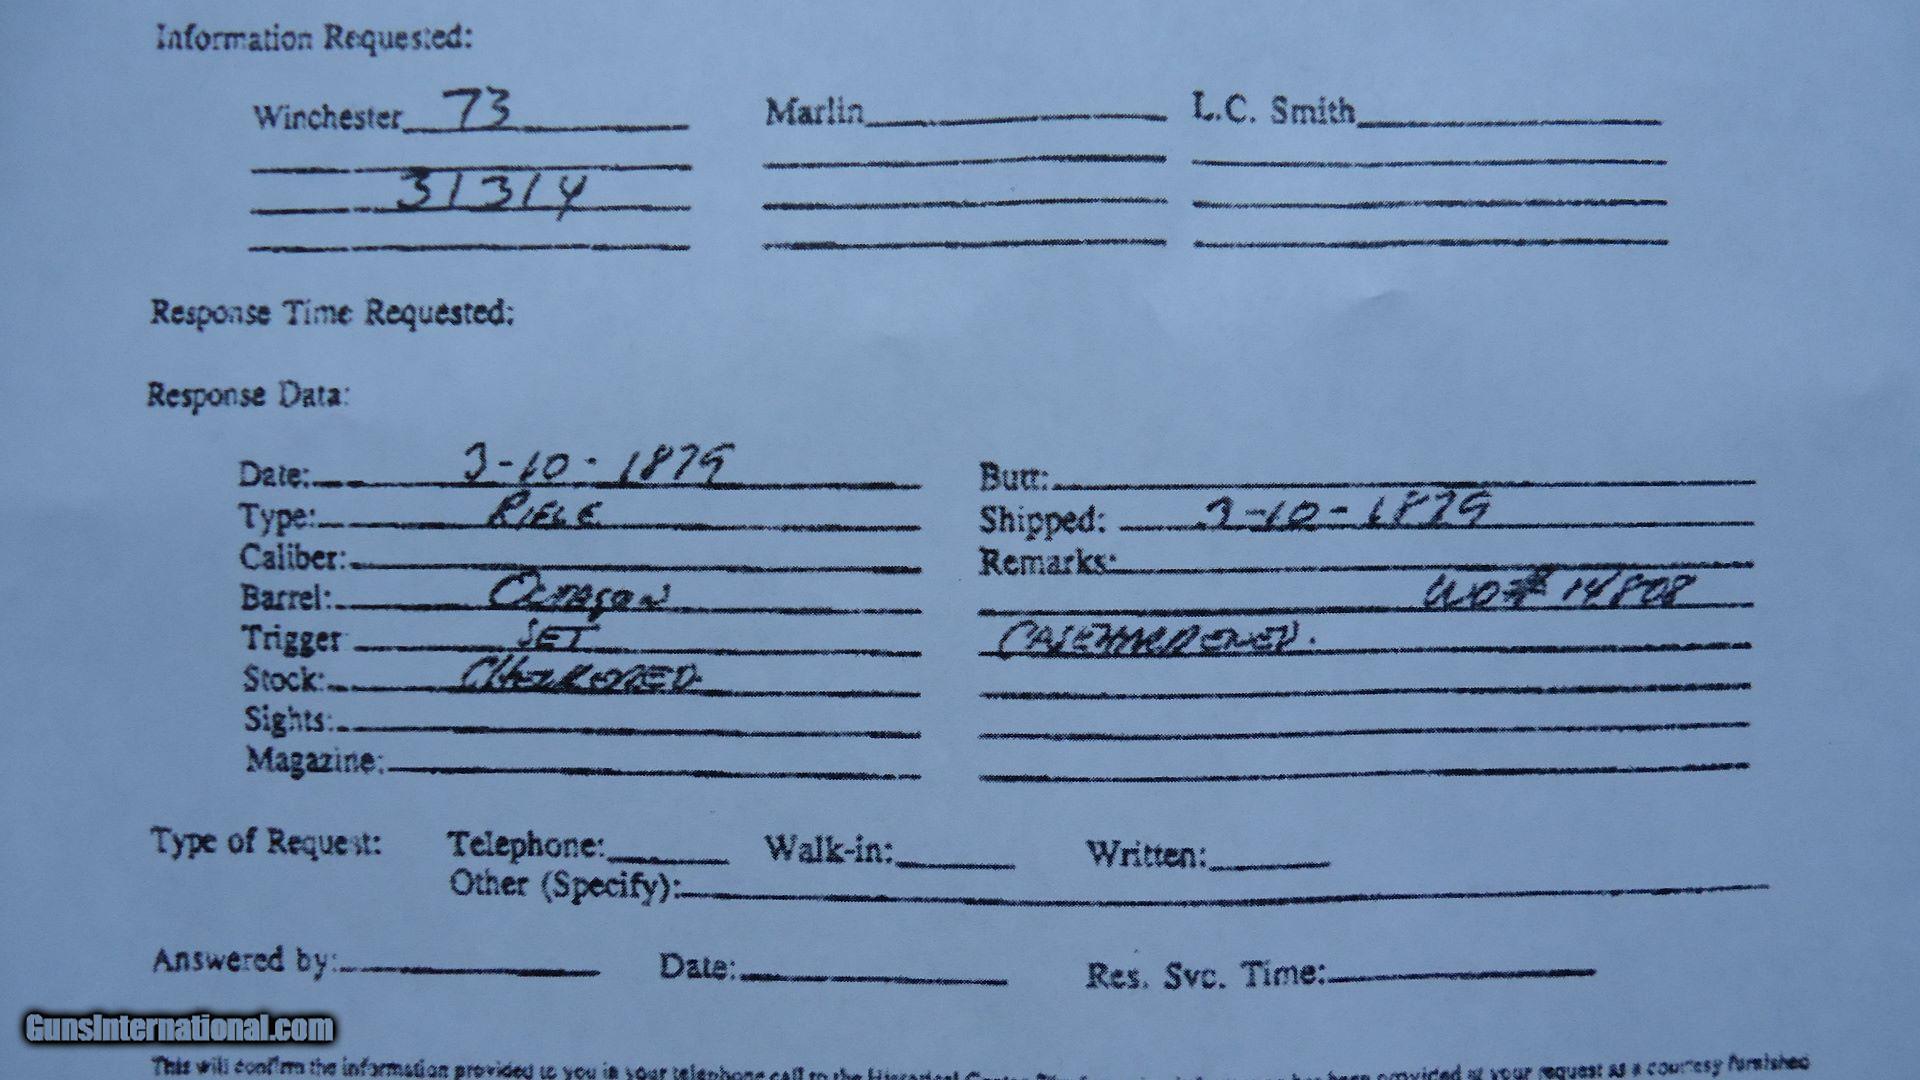 Information Requested:
Winchester 73 Marlin L.C. Smith
31314
Response Time Requested:
Response Data:
Date: 3-10-1879 Butt:
Type: RIFLE Shipped: 3-10-1879
Caliber: Remarks:
Barrel: OCTAGON WO# 14808
Trigger SET CASEHARDENED.
Stock: CHECKERED
Sights:
Magazine:
Type of Request: Telephone: Walk-in: Written:
Other (Specify):
Answered by: Date: Res. Svc. Time:
GunsInternational.com
This will confirm the information provided to you in your telephone call to the Historical Center been provided at your request as a courtesy furnished